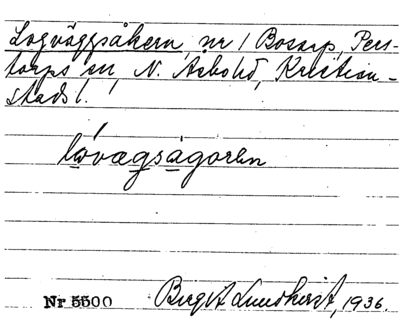 Logväggsåkern, nr 1 Bosarp, Pers-
torps sn, N. Åsbohd, Kristian-
stads l.
lóvagságorən
Nr 5500 Birgit Lundkvist, 1936.